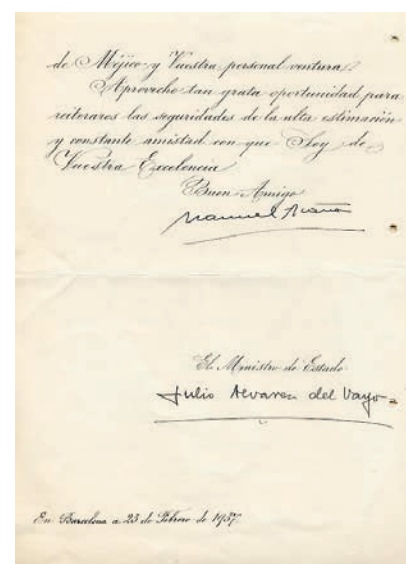 de Méjico y Vuestra personal ventura.
Aprovecho tan grata oportunidad para
reiteraros las seguridades de la alta estimación
y constante amistad con que Soy de
Vuestra Excelencia
Buen Amigo
Manuel Azaña
El Ministro de Estado
Julio Alvarez del Vayo
En Barcelona a 23 de Febrero de 1937.